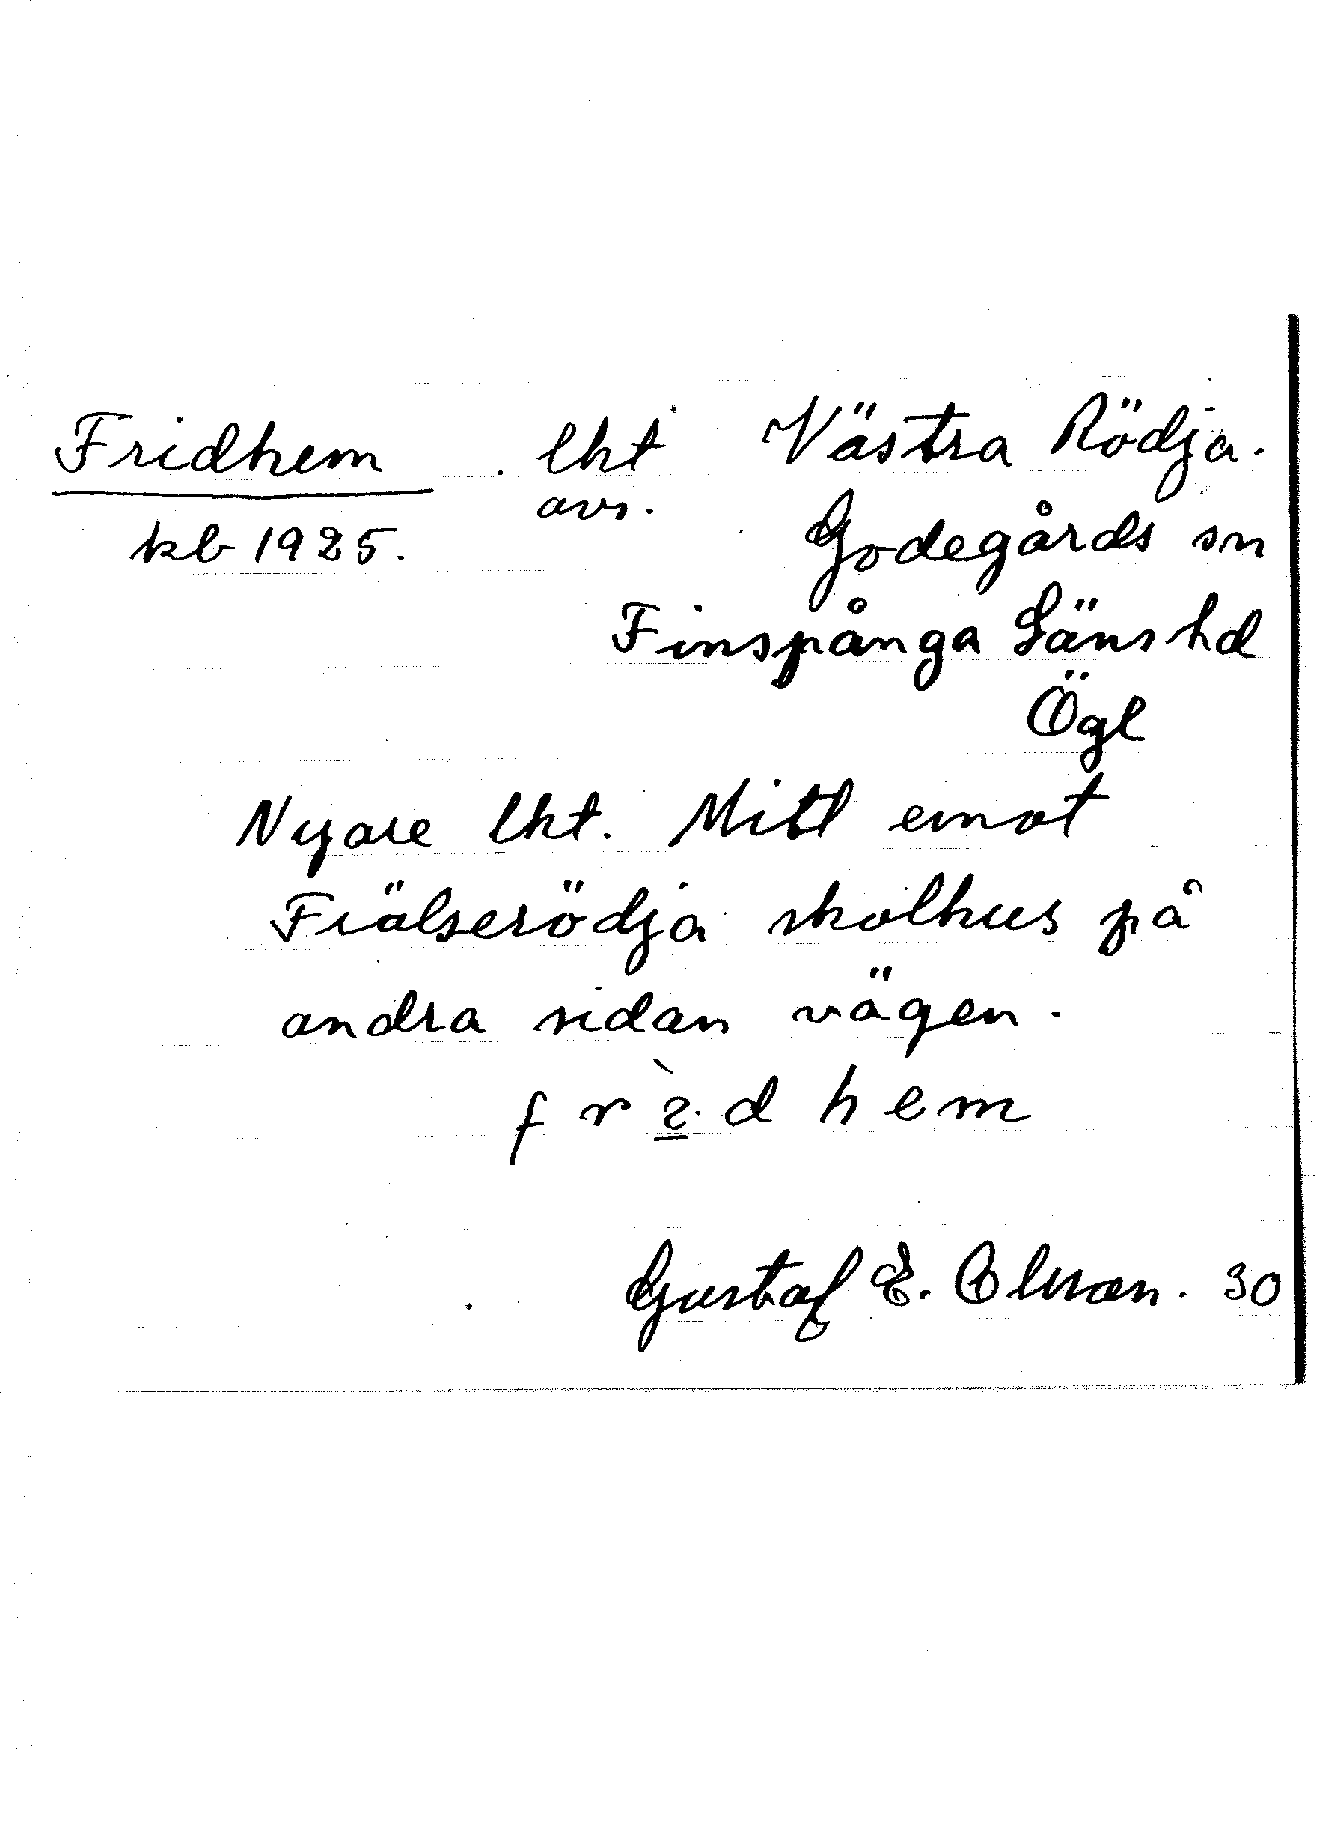 Fridhem lht Västra Rödja.
avs.
kb 1925. Godegårds sn
Finspånga Läns hd
Ögl
Nyare lht. Mitt emot
Frälserödja skolhus på
andra sidan vägen.
f r d h e m
Gustaf E. Olsson. 30